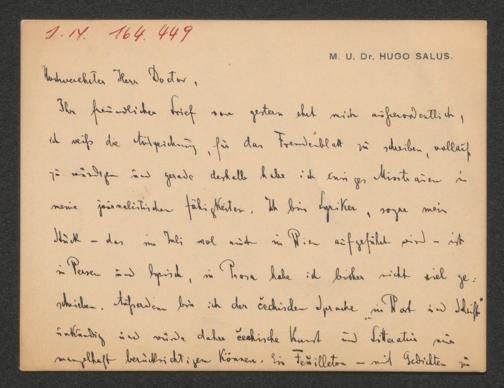 I. N. 164.449
M. U. Dr. HUGO SALUS.
Hochverehrter Herr Doctor,
Ihr freundlicher Brief von gestern ehrt mich außerordentlich,
ich weiß die Auszeichnung, für das Fremdenblatt zu schreiben, vollauf
zu würdigen und gerade deshalb habe ich einiges Misstrauen in
meine journalistischen Fähigkeiten. Ich bin Lyriker, sogar mein
Stück – das im Juli in Wien aufgeführt wird – ist
in Versen und lyrisch, in Prosa habe ich bisher nicht viel ge-
schrieben. Außerdem bin ich der čechischen Sprache „in Wort und Schrift“
unkundig und würde daher čechische Kunst und Literatur nur
mangelhaft berücksichtigen können. Ein Feuilleton – mit Gedichten zu